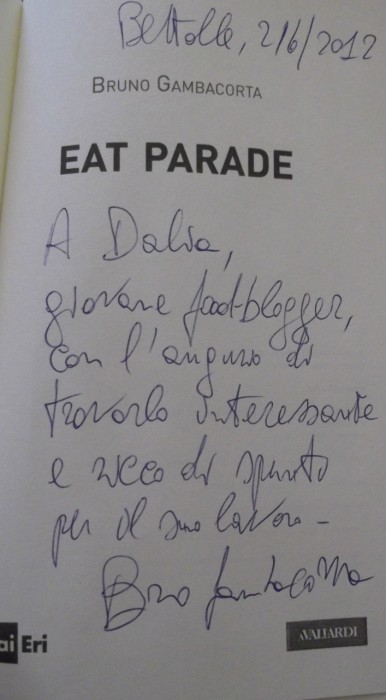 Bettolle, 2/6/2012
BRUNO GAMBACORTA
EAT PARADE
A Dalia,
giovane food-blogger,
con l'augurio di
trovarlo interessante
e ricco di spunti
per il suo lavoro -
Bruno Gambacorta
ai Eri
AVALLARDI